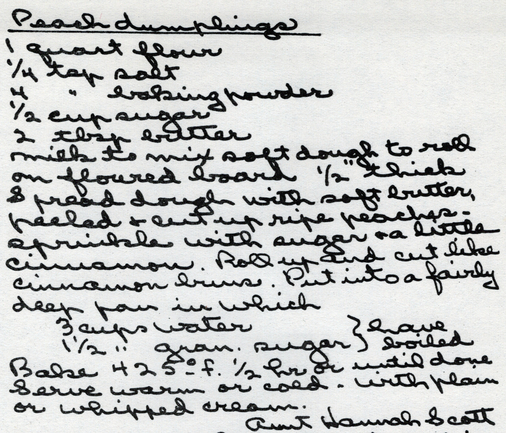 Peach dumplings
1 quart flour
1/4 tsp salt
4 " baking powder
1/2 cup sugar
2 tbsp butter
milk to mix soft dough to roll
on floured board 1/2" thick
Spread dough with soft butter,
peeled & cut up ripe peaches -
sprinkle with sugar & a little
cinnamon. Roll up and cut like
cinnamon buns. Put into a fairly
deep pan in which
3 cups water } have
1 1/2 " gran. sugar } boiled
Bake 425° f. 1/2 hr or until done
Serve warm or cold - with plain
or whipped cream.
Aunt Hannah Scott